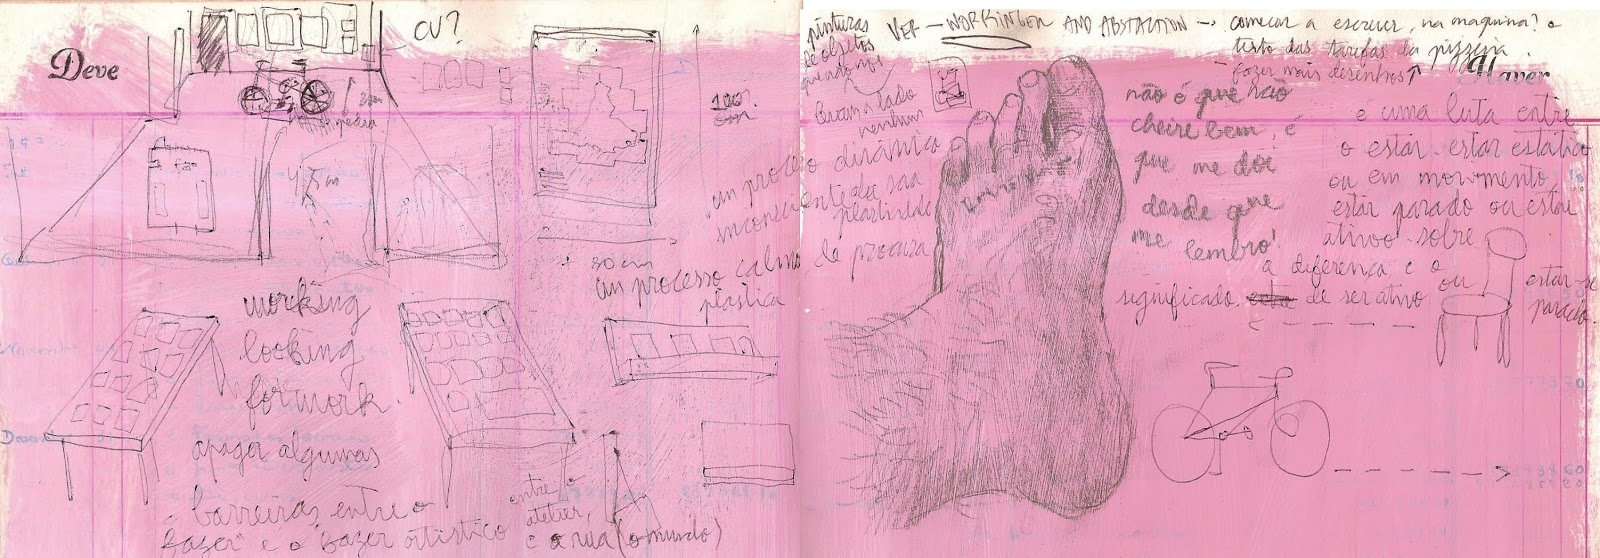 Deve
CV?
100
cm
4,5m
50 cm
um processo dinâmico
inconsciente de sua
plasticidade
um processo calmo de procura
plástica
working
looking
for work.
apagar algumas
barreiras entre o
"fazer" e o "fazer artístico
entre o
atelier,
e a rua (o mundo)
pinturas
de objetos
VER — WORRINGER AND ABSTRACTION → começar a escrever, na maquina? o
texto das tarefas da pizzeria.
- fazer mais desenhos ↑
Haver
a lado
nenhum
não é que não
cheire bem, é
que me doi
desde que
me lembro!
é uma luta entre
o estar. estar estático
ou em movimento,
estar parado ou estar
ativo. sobre
a diferença e o
significado de ser ativo ou estar-se
parado.